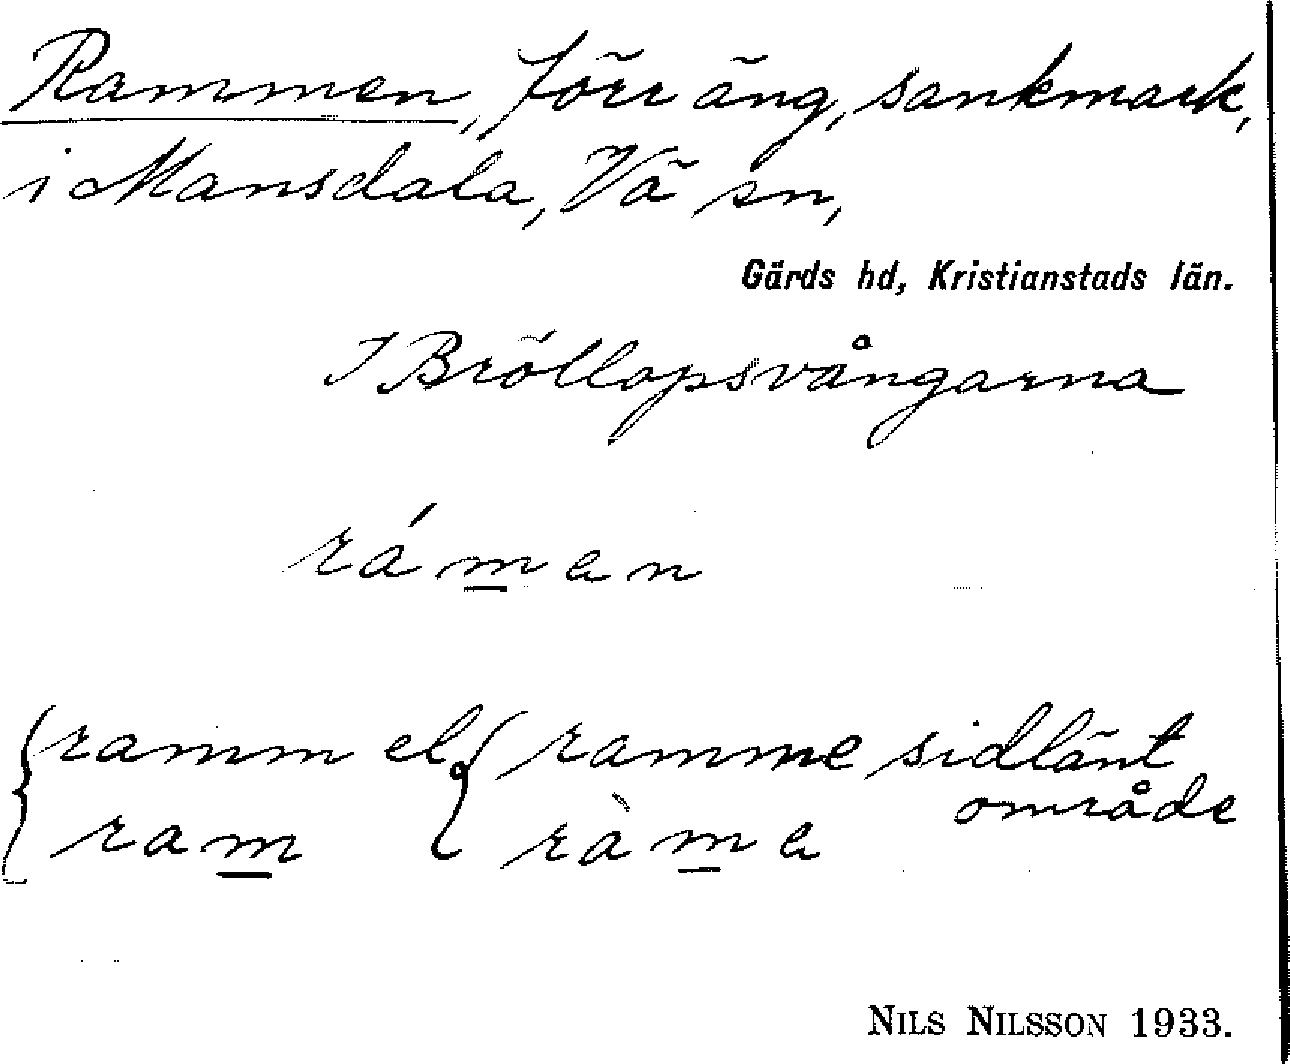 Rammen, förr äng, sankmark,
i Mansdala, Vä sn,
Gärds hd, Kristianstads län.
I Bröllopsvångarna
rámen
{ramm el. {ramme sidlänt
område
ram ràme
NILS NILSSON 1933.